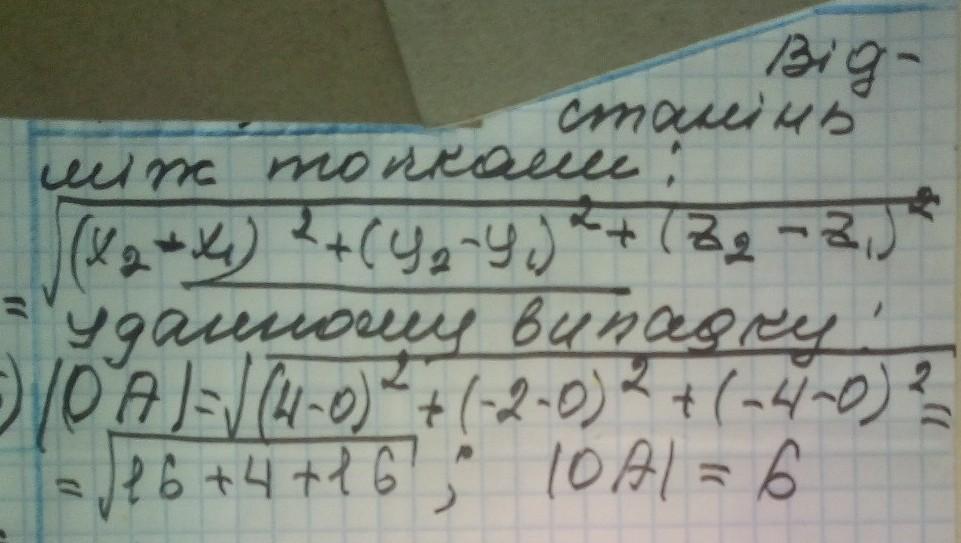 Від-
станінь
між точками:
√(x₂-x₁)²+(y₂-y₁)²+(z₂-z₁)²
=
у данному випадку:
) |OA|=√(4-0)²+(-2-0)²+(-4-0)²=
=√16+4+16 ; |OA|=6